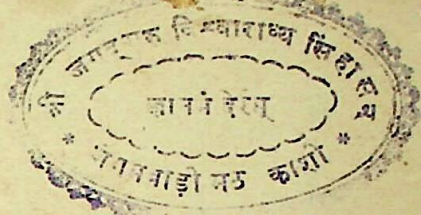 श्री जगद्गुरु विश्वाराध्य सिंहासन
ज्ञान मंदिरम्
* जंगमवाड़ी मठ काशी *